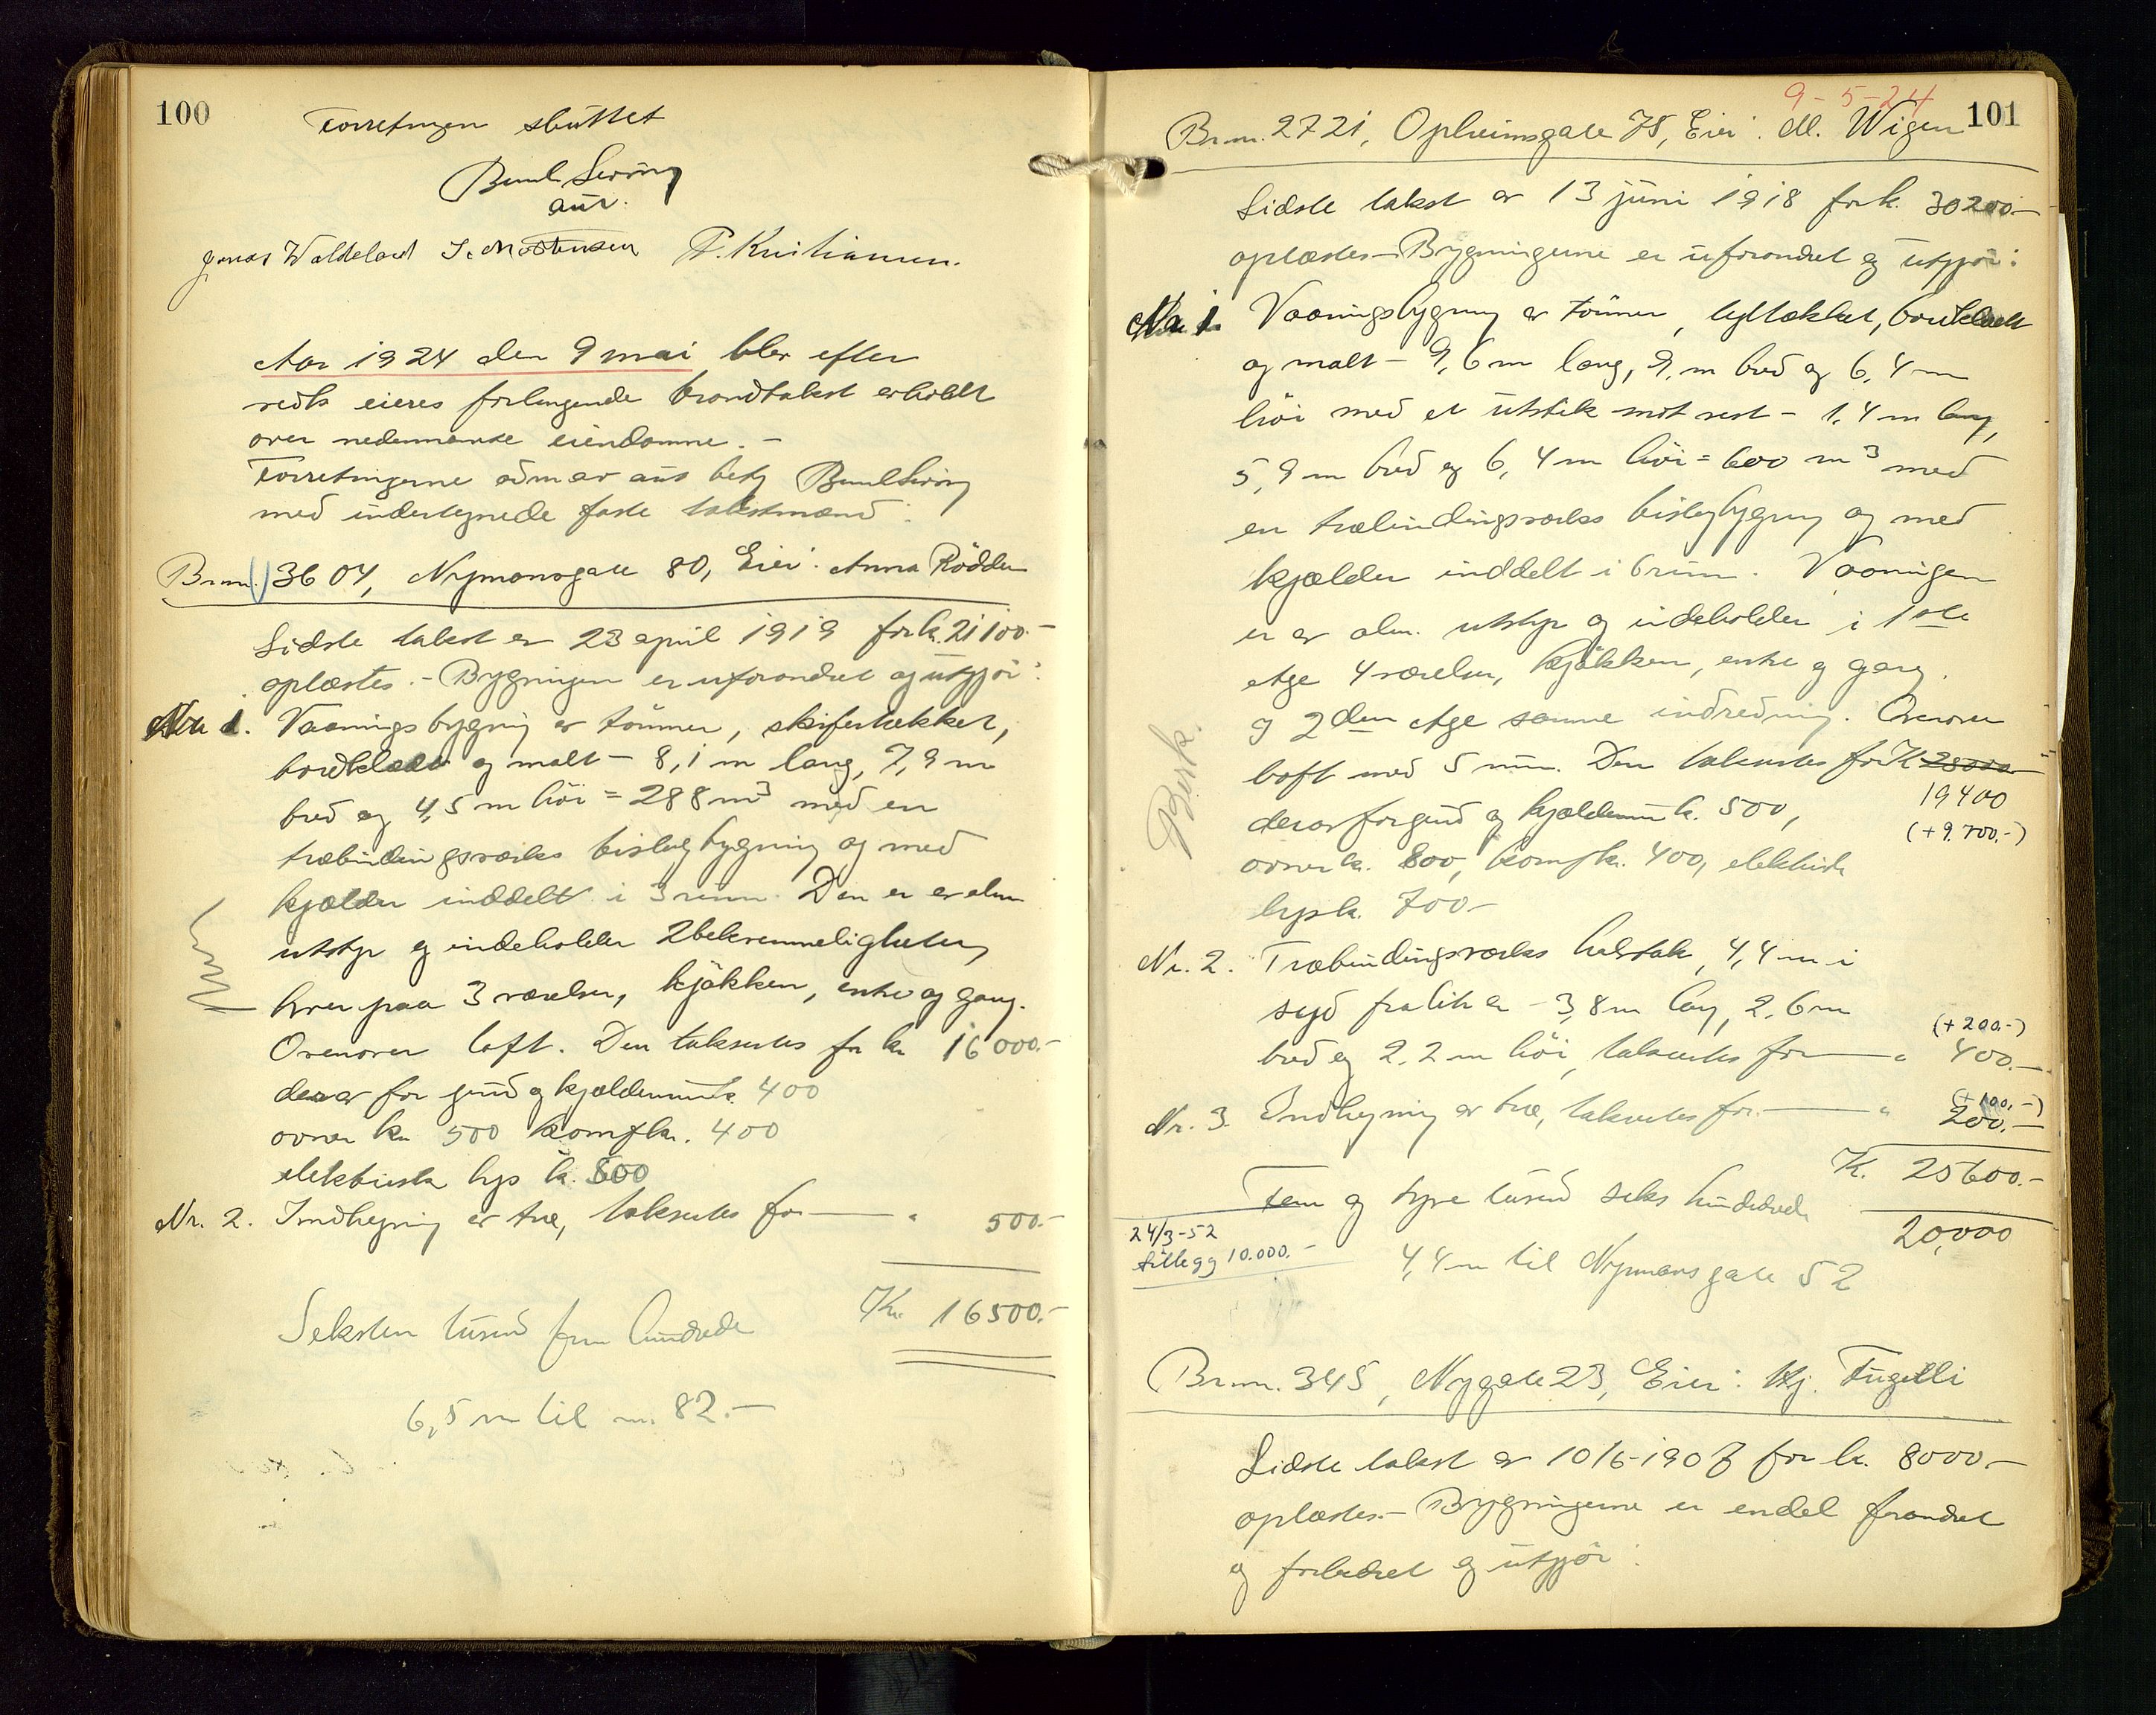 100
Forretningen sluttet
aut.
Jonas Waldeland J. Mortensen P. Kristiansen.
Aar 1924 den 9 mai blev efter
vedk eieres forlangende brandtakst avholdt
over nedennævnte eiendomme. -
Forretningerne adm av aut
med undertegnede faste takstmænd:
Br.nr. 3604, Nymansgate 80, Eier: Anna Rödder
Sidste takst er 23 april 1919 for k. 21100.-
oplæstes. - Bygningen er uforandret og utgjör:
Nr. 1. Vaaningsbygning av tömmer, skifertækket,
bordklædt og malt - 8,1 m lang, 7,9 m
bred og 4,5 m höi = 288 m³ med en
træbindingsværks bislagbygning og med
kjælder inddelt i 3 rum. Den er av alm
utstyr og indeholder 2 bekvemmeligheter,
hver paa 3 værelser, kjøkken, entre og gang.
Ovenover loft. Den takseres for kr 16000.-
derav for grund og kjældermur k. 400
ovner kr 500 komf kr. 400
elektrisk lys k. 500
Nr. 2. Indhegning av træ, takseres for — " 500.-
Kr. 16500.-
Seksten tusind fem hundrede
6,5 m til nr. 82.-
9-5-24
101
Br.nr. 2721, Opheimsgate 75, Eier: M. Wigen
Sidste takst er 13 juni 1918 for k. 30200-
oplæstes - Bygningerne er uforandret og utgjör:
Nr. 1. Vaaningsbygning av tömmer, tegltækket, bordklædt
og malt - 9,6 m lang, 9, m bred og 6,4 m
höi med et utstik mot vest - 1,4 m lang,
5,9 m bred og 6,4 m höi = 600 m³ med
en træbindingsværks bislagbygning og med
kjælder inddelt i 6 rum. Vaaningen
er av alm. utstyr og indeholder i 1ste
etge 4 værelser, kjøkken, entre og gang.
og 2den etge samme indredning. Ovenover
loft med 5 rum. Den takseres for K 25000
19400
(+9.700.-)
derav for grund og kjældermur k. 500,
ovner k. 800, komf k. 400, elektrisk
lys k. 700-
Besk.
Nr. 2. Træbindingsværks halvtak, 4,4 m i
syd fra litr a - 3,8 m lang, 2,6 m
(+200.-)
bred og 2,2 m höi, takseres for — " 400.-
(+100.-)
Nr. 3. Indhegning av træ, takseres for — " 200.-
K. 25600.-
Fem og tyve tusind seks hundrede
20,000
24/3-52
tillegg 10.000.-
4,4 m til Nymansgate 52
Br.nr. 345, Nygate 23, Eier: Hj. Fugelli
Sidste takst er 10/6-1907 for k. 8000.-
oplæstes - Bygningerne er endel forandret
og forbedret og utgjör: